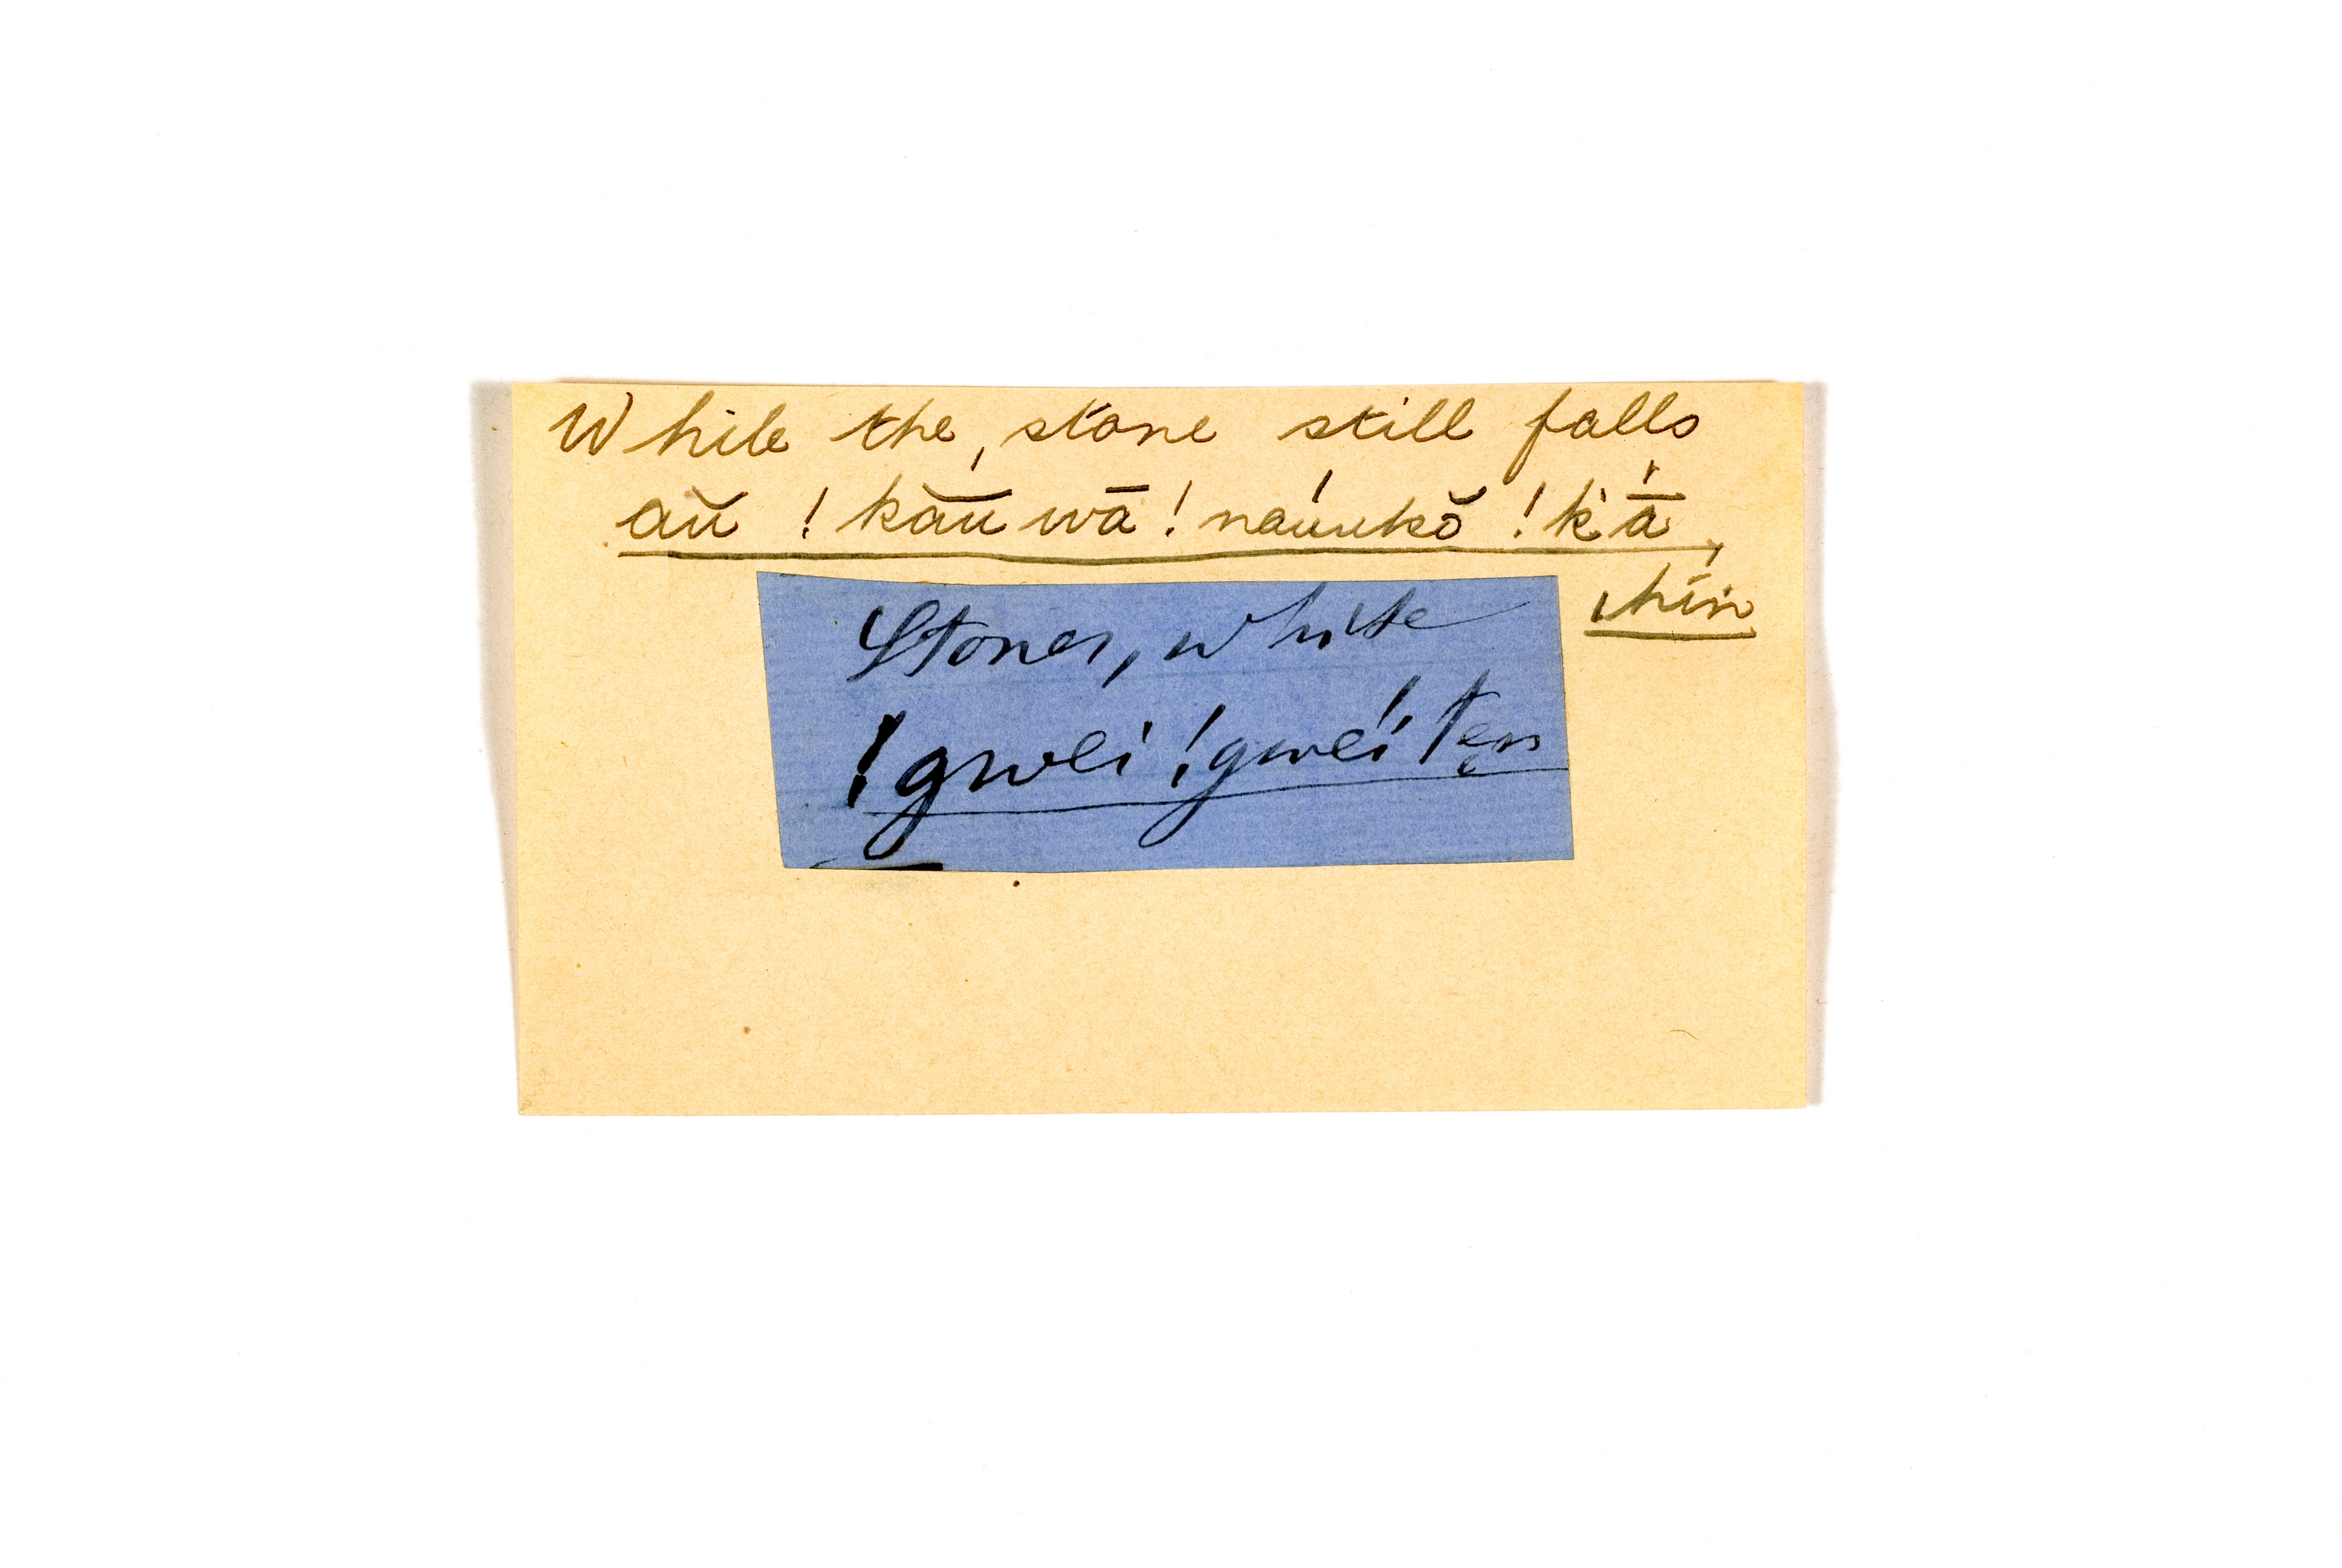 While the, stone still falls
aŭ !kāuwā !náunkŏ !k'ā́
hin
Stones, white
!gwei !gwéíten